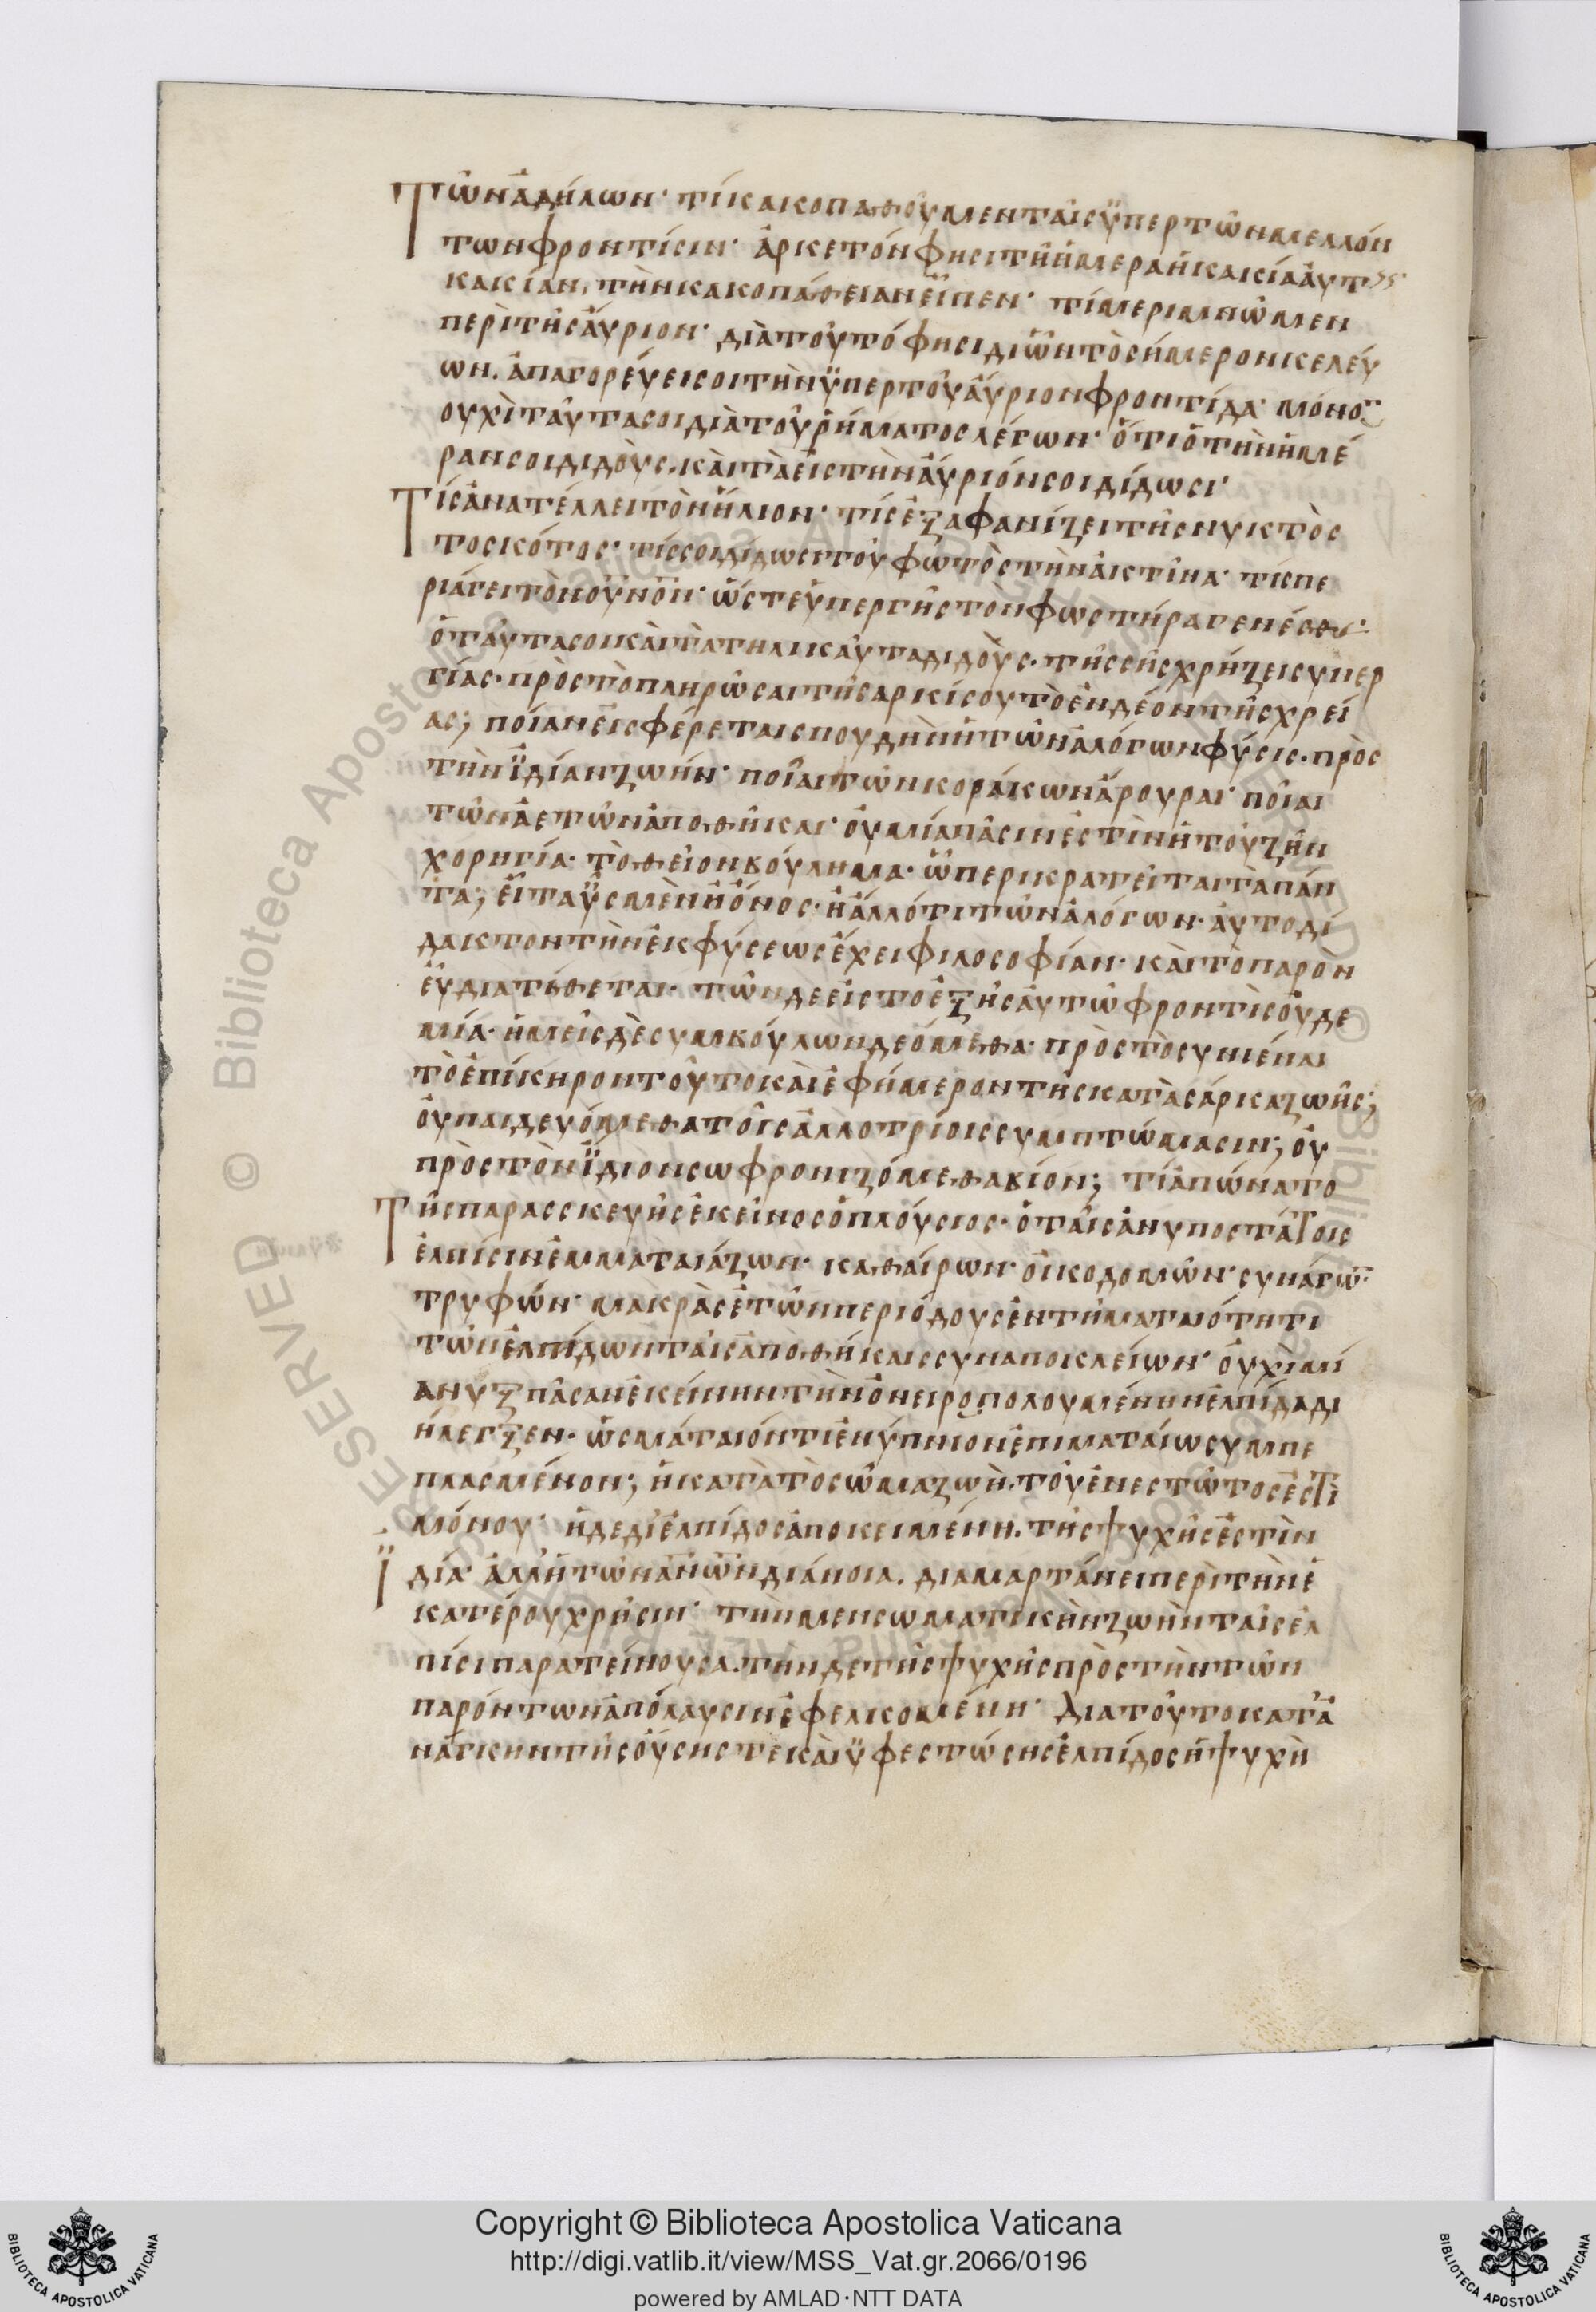 Τῶν ἀδήλων· τί κακοπαθοῦμεν ταῖς ϋπερ τῶν μελλόν
των φροντίσιν· ἀρκετόν φησι τῆ ἡμερα ἡ κακία ἀυτῆς·
κακίαν, τὴν κακοπάθειαν εἶπεν· τί μεριμνῶμεν
περὶ τῆς ἄυριον· διὰ τοῦτό φησι δι ὧν τὸ σήμερον κελεύ
ων. ἀπαγορεύει σοι τὴν ϋπερ τοῦ ἄυριον φροντίδα· μόνο
ουχὶ ταῦτα σοι διὰ τοῦ ῥήματος λέγων· ὅτι ὁ τὴν ἡμέ
ραν σοι διδοὺς. καὶ τὰ εἰς τὴν ἄυριόν σοι δίδωσι·
Τίς ἀνατέλλει τὸν ἥλιον· τίς ἐξαφανίζει τῆς νυκτὸς
το σκότος· τίς σοι δίδωσι τοῦ φωτὸς τὴν ἀκτῖνα· τίς πε
ριάγει τὸν οὐνον· ὥστε ϋπερ γῆς τὸν φωστήρα γενέσθαι·
ὁ ταῦτα σοι καὶ τὰ τηλικαῦτα διδοὺς. τῆς σῆς χρήζει συνερ
γίας· πρὸς τὸ πληρῶσαι τῆ σαρκί σου τὸ ἐνδέον τῆς χρεί
ας; ποίαν εἰσφέρεται σπουδὴν ἡ τῶν ἀλόγων φύσις. πρὸς
τὴν ϊδίαν ζωήν· ποῖαι τῶν κοράκων ἄρουραι· ποῖαι
τῶν ἀετῶν ἀποθῆκαι· οὐ μία πᾶσιν ἐστὶν ἡ τοῦ ζῆν
χορηγία· τὸ θεῖον βούλημα· ὧ περικρατεῖται τὰ πάν
τα; εἶτα ϋς μὲν ἢ ὄνος· ἢ ἄλλό τι τῶν ἀλόγων· ἀυτοδί
δακτον τὴν ἐκ φύσεως ἔχει φιλοσοφίαν· καὶ τὸ παρον
εὖ διατίθεται· τῶν δε εἰς το ἑξῆς ἀυτῶ φροντὶς οὐδε
μία· ἡμεῖς δὲ συμβούλων δεόμεθα· πρὸς τὸ συνιέναι
τὸ ἐπίκηρον τοῦτο καὶ ἐφήμερον τῆς κατὰ σάρκα ζωῆς;
οὐ παιδευόμεθα τοῖς ἀλλοτρίοις συμπτώμασιν; οὐ
πρὸς τὸν ϊδιον σωφρονιζόμεθα βίον; τί ἀπώνατο
Τῆς παρασσκευῆς ἐκεῖνος ὁ πλούσιος· ὁ ταῖς ἀνυποστάτοις
ἐλπίσιν ἐμματαιάζων· καθαίρων· οἰκοδομῶν· συνάγω̅
τρυφῶν· μακρὰς ἐτῶν περιόδους ἐν τῆ ματαιότητι
τῶν ἐλπίδων ταῖς ἀποθήκαις συναποκλείων· οὐχὶ μί
α νυξ πᾶσαν ἐκείνην τὴν ὀνειροπολουμένην ἐλπίδα δι
ήλεγξεν· ὡς μάταιόν τι ἐνύπνιον ἐπι ματαίω συμπε
πλασμένον; ἡ κατὰ τὸ σῶμα ζωὴ. τοῦ ἐνεστῶτος ἐστὶ
μόνου· ἡ δε δι ἐλπίδος ἀποκειμένη. τῆς ψυχῆς ἐστὶν
ϊδία· ἀλλ ἡ τῶν ἀ̅ν̅ω̅ν̅ διάνοια. διαμαρτάνει περὶ τὴν ἑ
κατέρου χρῆσιν· τὴν μεν σωματικὴν ζωὴν ταῖς ἐλ
πίσι παρατείνουσα. τὴν δε τῆς ψυχῆς πρὸς τὴν τῶν
παρόντων ἀπόλαυσιν ἐφελκομένη· Δια τοῦτο κατ ἀ
νάγκην τῆς οὔσης τε καὶ ϋφεστώσης ἐλπίδος ἡ ψυχὴ
Copyright © Biblioteca Apostolica Vaticana
http://digi.vatlib.it/view/MSS_Vat.gr.2066/0196
powered by AMLAD·NTT DATA
BIBLIOTECA APOSTOLICA VATICANA
BIBLIOTECA APOSTOLICA VATICANA